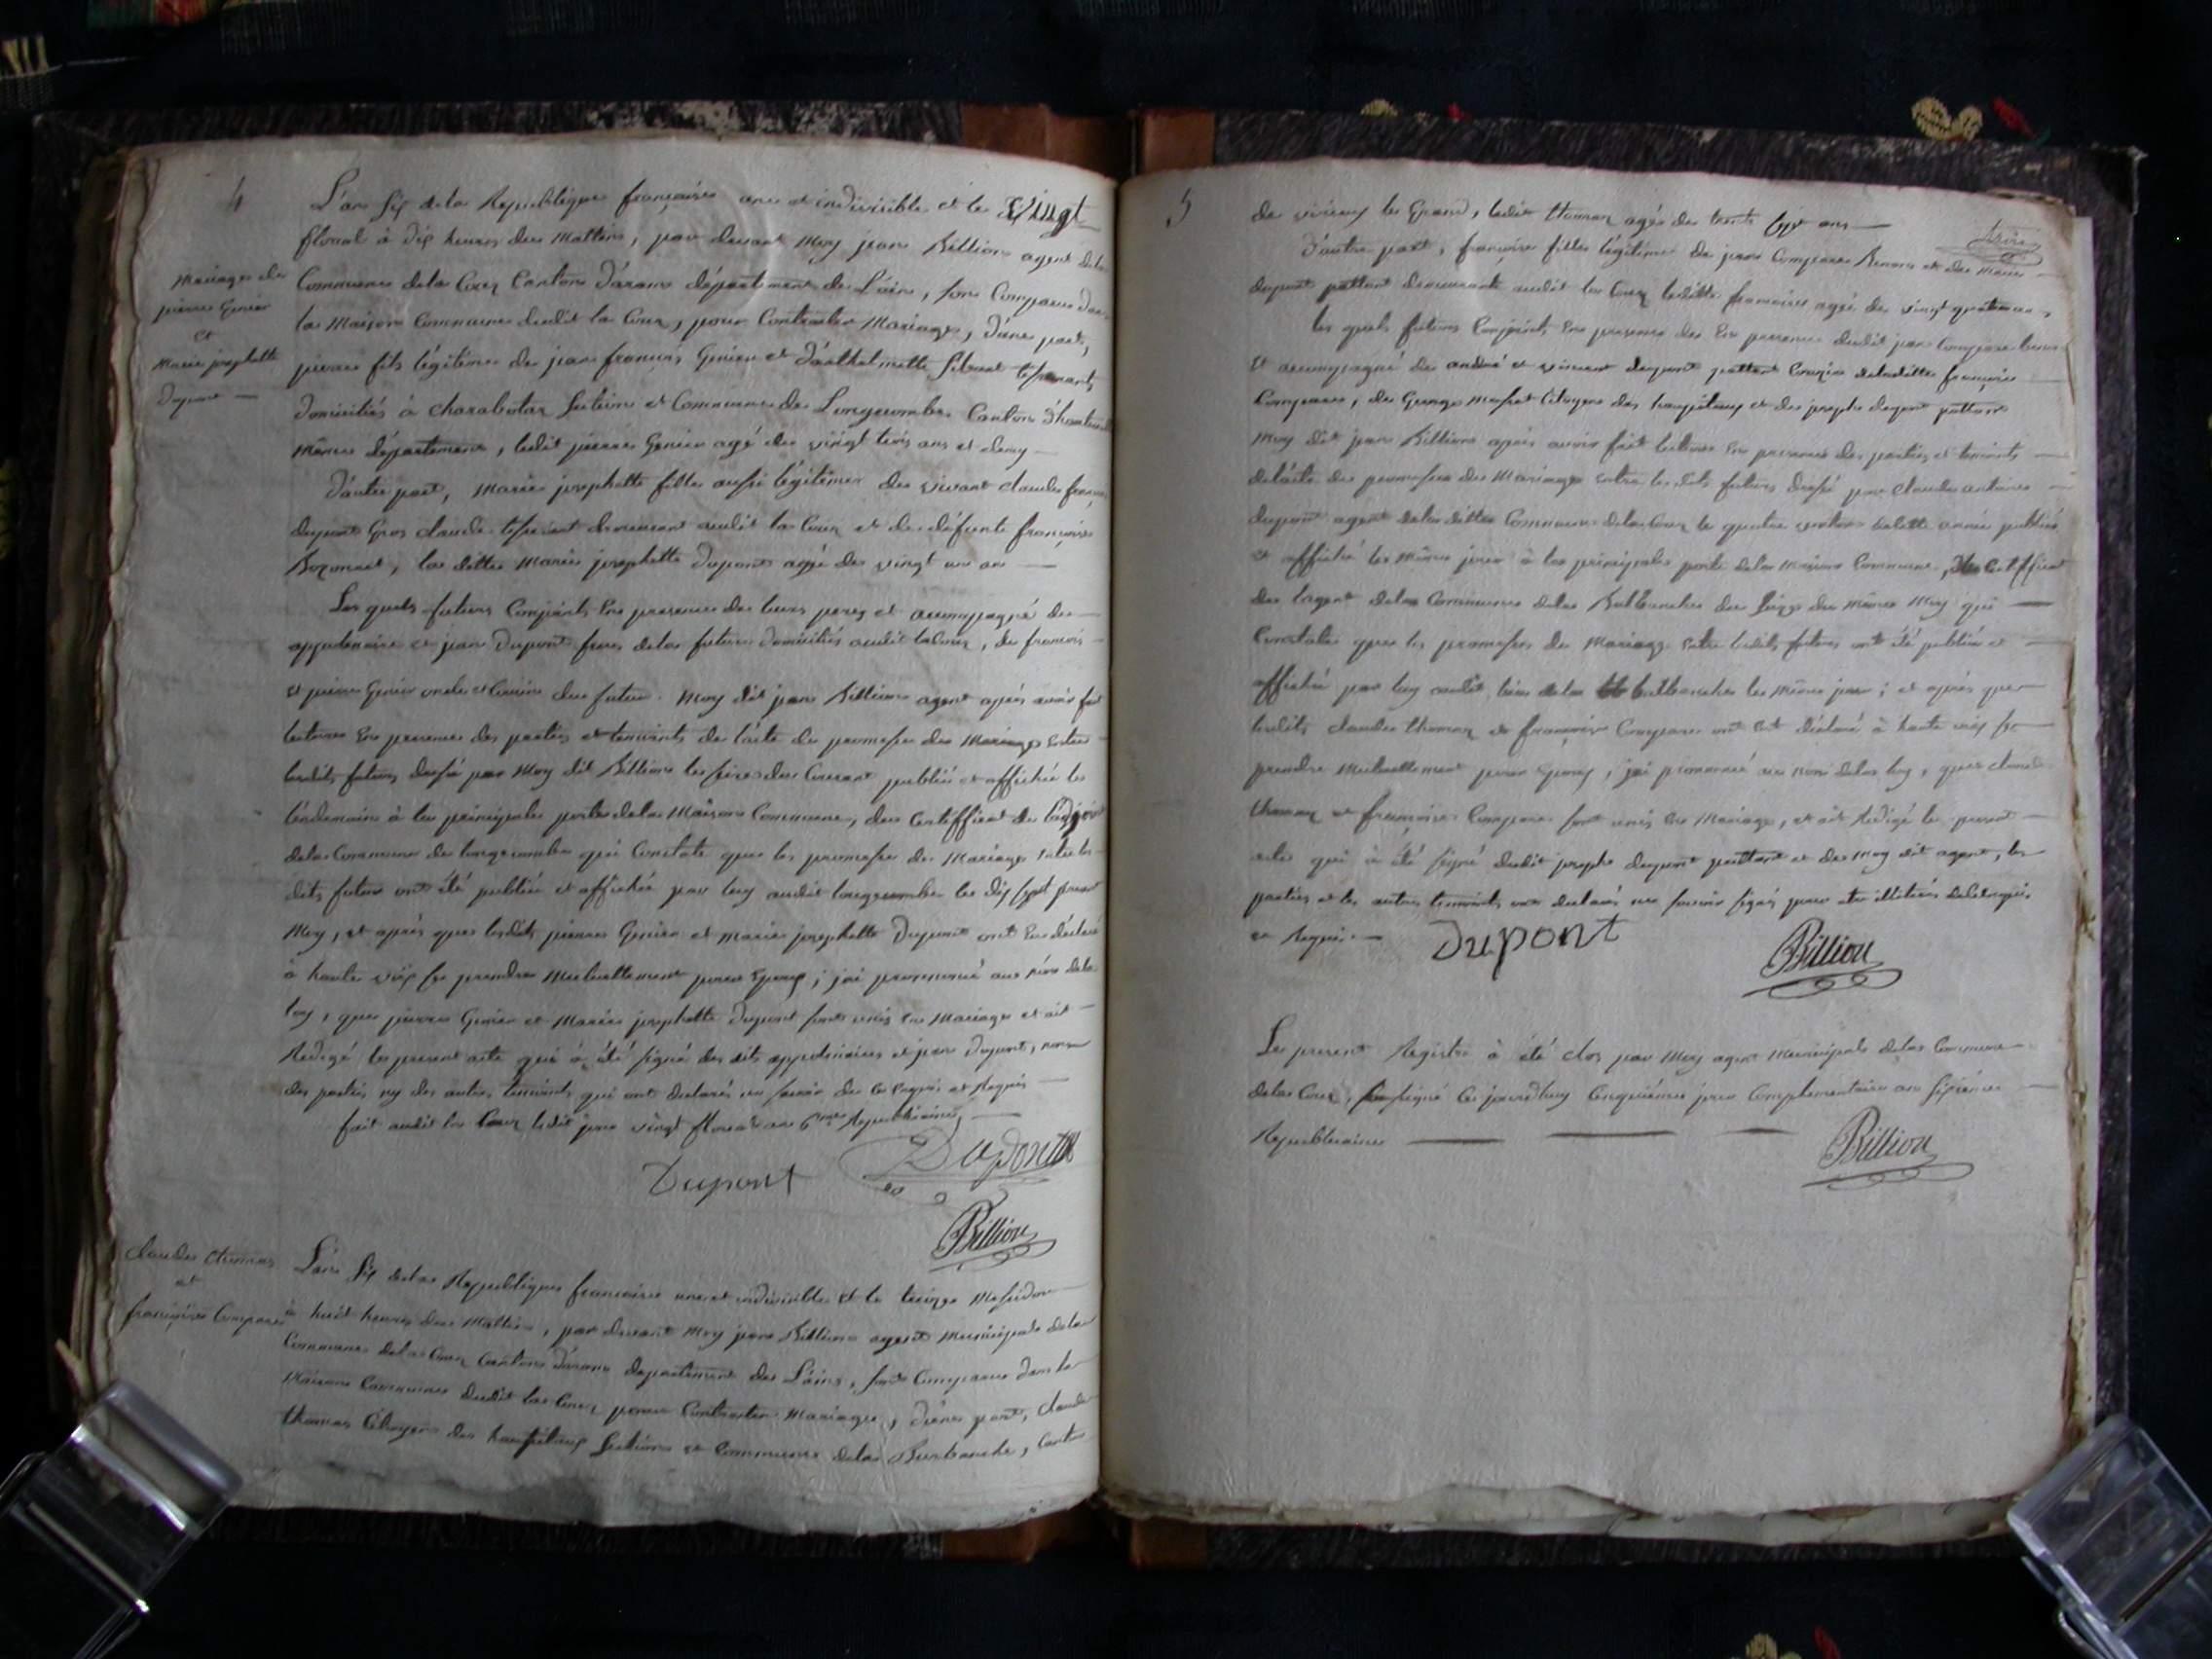 4
L'an six de la Republique françaises une et indivisible et le Vingt
floreal à dix heures du Mattin, par devant Moy jean Billion agent dela
Mariage de
pierre Genier
et
Marie josephette
Dupont
Commune dela Coux Canton d'arane département de L'ain, sont Comparus dans
la Maison Commune dudit la Coux, pour Contracter Mariage, d'une part,
pierre fils légitime de jean françois Genier et d'anthelmette
domiciliés à charabotaz section et Commune de Longecombe Canton d'hauteville
même département, ledit pierre Genier agé de vingt trois ans et demy
D'autre part, Marie josephette fille aussi légitime de vivant claude françois
dupont Gros claude demeurant audit la Coux et de défunte françoise
la ditte Marie josephette Dupont agée de vingt un an
Les quels futurs Conjoints En presence de leurs peres et accompagné de
appolinaire et jean Dupont freres dela future domiciliés audit la Coux, de francois
et pierre Genier oncle et Cousin du futur. Moy dit jean Billion agent après avoir fait
lecture En presence des parties et temoints de l'acte de promesse de Mariage Entre
lesdits futurs dressé par Moy dit Billion le seize du Courant publié et affiché le
lendemain à la principale porte dela Maison Commune, du Certifficat de l'adjoint
dela Commune de longecombe qui Constate que les promesse de Mariage Entre les
dits futurs ont été publiée et affichée par luy audit longecombe le dix sept present
Moy, et après que lesdits pierre Genier et marie josephette Dupont ont Eu déclaré
à haute voix se prendre Mutuellement pour Epoux; j'ai prononcé au nom dela
loy, que pierre Genier et Marie josephette Dupont sont unis En Mariage et ait
Redigé le present acte qui à été signé des dits appolinaire et jean Dupont, non
des parties ny des autres temoints qui ont declarés ne savoir de ce Enquis et Requis
fait audit la Coux ledit jour vingt floreal an 6me Republicaine,
Dupont Dupont
Billion
claude thomas
et
françoise Compare
L'an six dela Republique francaise une et indivisible et le treize Messidor
à huit heures du Mattin, par devant Moy jean Billion agent Municipale dela
Commune dela Coux Canton d'arane departement de L'ain, sont Comparus dans la
Maison Commune dudit la Coux pour Contracter Mariage, d'une part, claude
thomas Citoyen des section et Commune dela Burbanche, Canton
5
de virieux le Grand, ledit thomas agé de trente sept ans
D'autre part, françoise fille légitime de jean Compare et de Marie
dupont pattant demeurants audit la Coux laditte françoise agée de vingt quatre ans,
les quels futurs Conjoints En presence de En presence dudit jean Compare
et accompagné de andré et vincent dupont pattant Cousins deladitte françoise
Compare, de George Citoyen des et de joseph dupont pattant
Moy dit jean Billion après avoir fait lecture En presence des parties et temoints
delacte de promesse de Mariage entre lesdits futurs dressé par claude antoine
dupont agent deladitte Commune dela Coux le quatre ventose dela ditte année publié
et affiché le même jour à la principale porte dela Maison Commune, du Certifficat
de lagent dela Commune dela Bulbanche du seize du même Moy qui
Constate que les promesses de Mariage Entre lesdits futurs ont été publiée et
affiché par luy audit lieu dela bulbanche le même jour; et après que
lesdits claude thomas et françoise Compare ont Eut déclaré à haute voix se
prendre Mutuellement pour Epoux, jai prononcé au nom dela loy, que claude
thomas et françoise Compare sont unis En Mariage, et ait Redigé le present
acte qui à été signé dudit joseph dupont pattant et de Moy dit agent, les
parties et les autres temoints ont declarés ne savoir signé pour etre illitérés
et Requis.
Dupont Billion
Le present Registre à été clos par Moy agent Municipale dela Commune
dela Coux, soussigné Ce jourdhuy Cinquième jour Complementaire an sixième
Republicaine
Billion